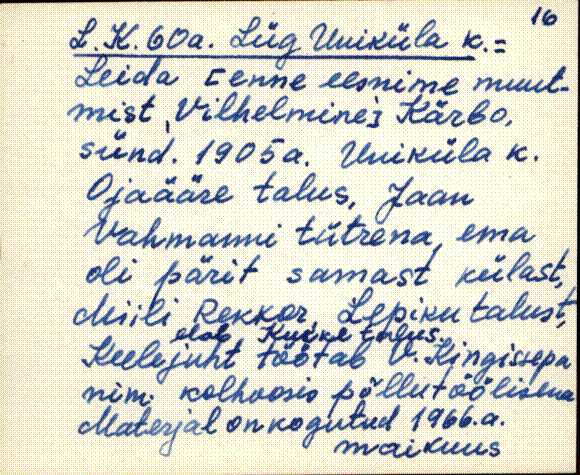 16
L. K. 60a. Lüg Uniküla k. =
Leida [enne eesnime muut-
mist „Vilhelmine] Kärbo,
sünd. 1905a. Uniküla k.
Ojaääre talus, Jaan
Vahmanni tütrena, ema
oli pärit samast külast,
Miili Rekkor Lepiku talust,
elab Kuike talus.
Keelejuht töötab V. Kingissepa
nim. kolhoosis põllutöölisena
Materjal on kogutud 1966.a.
maikuus